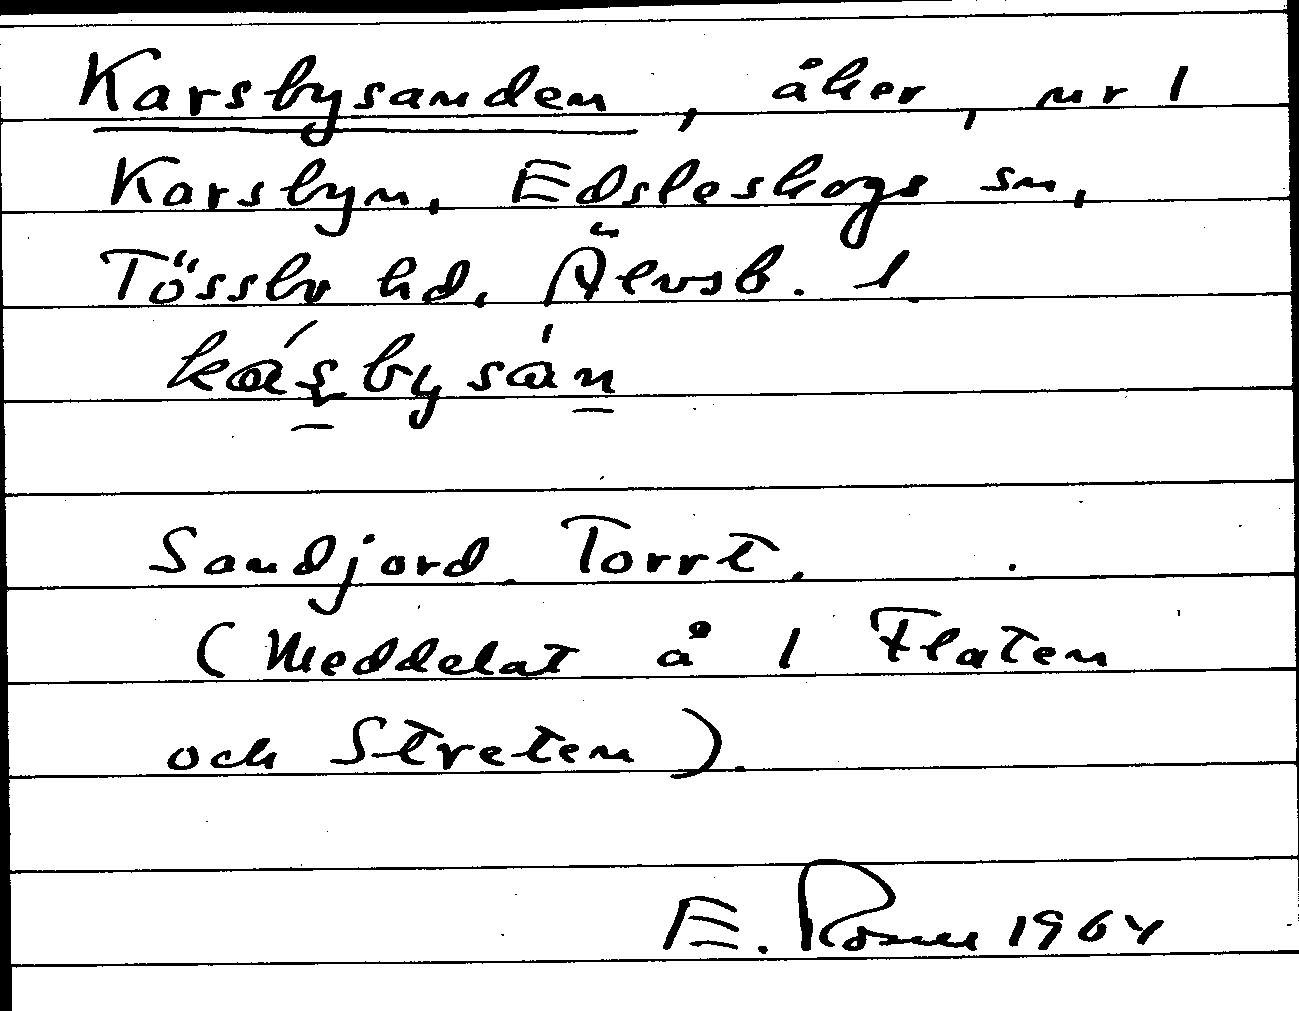 Karsbysanden, åker, nr 1
Karsbyn, Edsleskogs sn,
Tössbo hd, Älvsb. l
Sandjord. Torrt.
(Meddelat å 1 Flaten
och Streten).
E. 1964